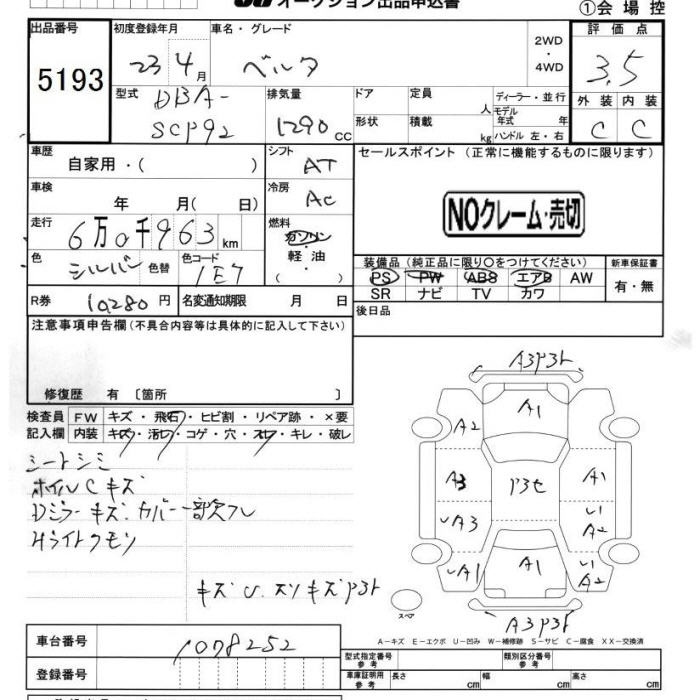 オークション出品申込書
①会場控
出品番号 初度登録年月 車名・グレード 2WD ・ 4WD 評価点
5193 23 4月 ベルタ 3.5
型式 DBA-SCP92 排気量 1290 CC ドア 形状 定員 人 積載 kg ディーラー・並行 モデル年式 年 ハンドル 左・右 外装 内装
C C
車歴 自家用・( ) シフト AT セールスポイント (正常に機能するものに限ります)
車検 年 月( 日) 冷房 AC
NOクレーム・売切
走行 6万0千963km 燃料 ガソリン 軽油 ( )
色 シルバー 色替 色コード 1E7 装備品(純正品に限り○をつけてください) 新車保証書
PS PW ABS エアB AW 有・無
SR ナビ TV カワ
R券 10,280円 名変通知期限 月 日 後日品
注意事項申告欄(不具合内容等は具体的に記入して下さい)
修復歴 有〔箇所 〕
検査員 FW キズ・飛石・ヒビ割・リペア跡・×要
記入欄 内装 キズ・汚レ・コゲ・穴・スレ・キレ・破レ
シートシミ
ホイルCキズ
Dミラーキズ・カバー一部欠フレ
Hライトクモリ
A3P3ト
A2 A1
A3 P3セ A1
A3 A2
A1 A1 A2
A3P3ト
スペア
A-キズ E-エクボ U-凹み W-補修跡 S-サビ C-腐食 XX-交換済
車台番号 1078252 型式指定番号 参考 類別区分番号 参考
登録番号 車庫証明用 参考 長さ cm 幅 cm 高さ cm